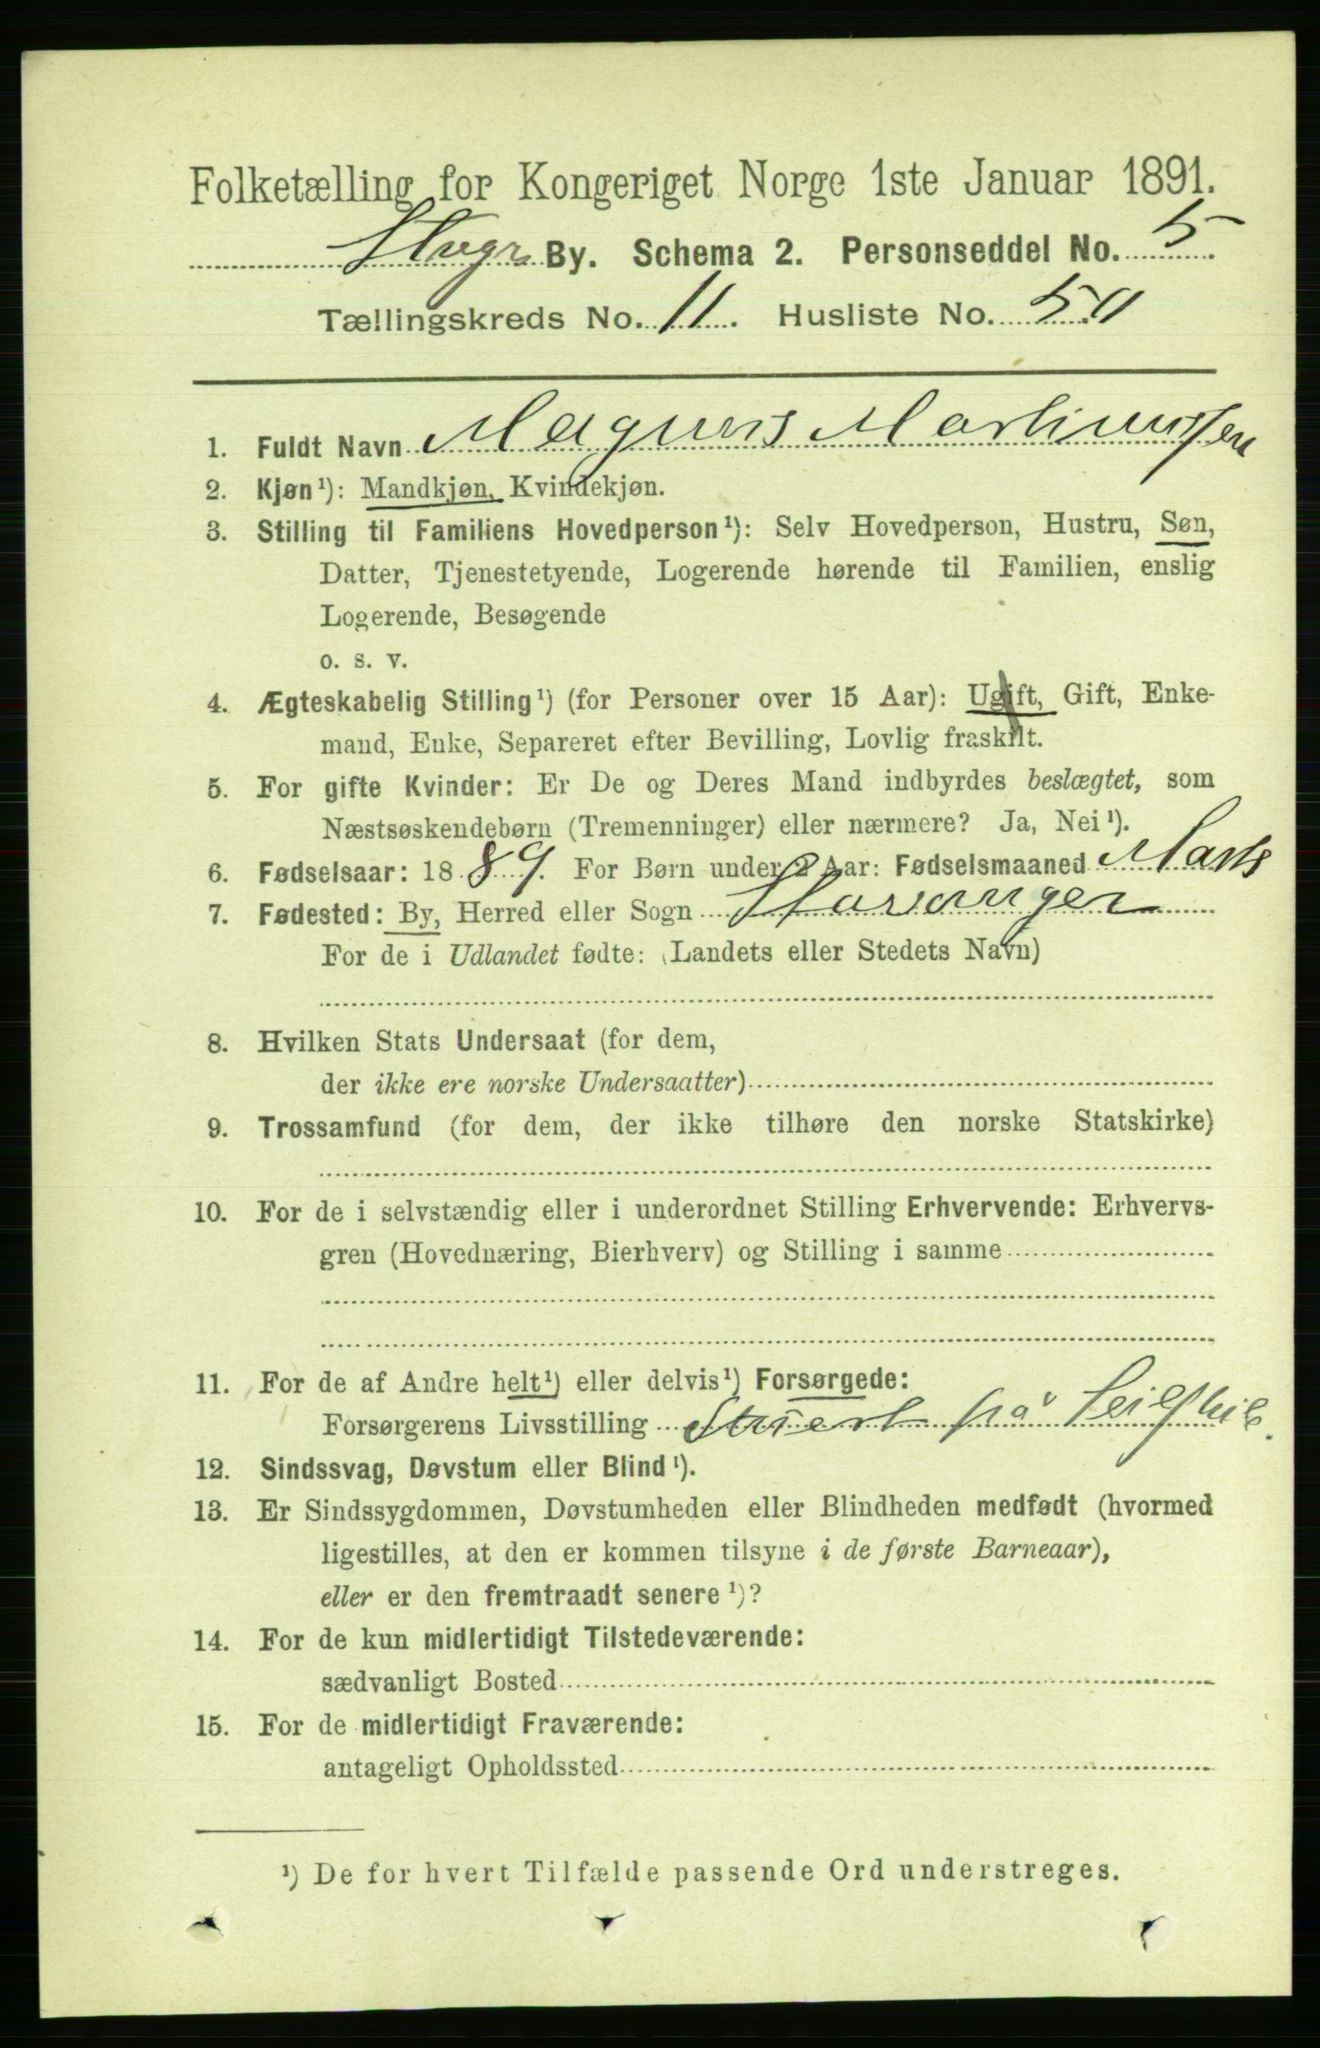 Folketælling for Kongeriget Norge 1ste Januar 1891.
Stvgr By. Schema 2. Personseddel No. 5
Tællingskreds No. 11. Husliste No. 50
1. Fuldt Navn Magnus Martinussen
2. Kjøn¹): Mandkjøn, Kvindekjøn.
3. Stilling til Familiens Hovedperson¹): Selv Hovedperson, Hustru, Søn,
Datter, Tjenestetyende, Logerende hørende til Familien, enslig
Logerende, Besøgende
o. s. v.
4. Ægteskabelig Stilling¹) (for Personer over 15 Aar): Ugift, Gift, Enke-
mand, Enke, Separeret efter Bevilling, Lovlig fraskilt.
5. For gifte Kvinder: Er De og Deres Mand indbyrdes beslægtet, som
Næstsøskendebørn (Tremenninger) eller nærmere? Ja, Nei¹).
6. Fødselsaar: 1889. For Børn under 2 Aar: Fødselsmaaned Marts
7. Fødested: By, Herred eller Sogn Stavanger
For de i Udlandet fødte: (Landets eller Stedets Navn)
8. Hvilken Stats Undersaat (for dem,
der ikke ere norske Undersaatter)
9. Trossamfund (for dem, der ikke tilhøre den norske Statskirke)
10. For de i selvstændig eller i underordnet Stilling Erhvervende: Erhvervs-
gren (Hovednæring, Bierhverv) og Stilling i samme
11. For de af Andre helt¹) eller delvis¹) Forsørgede:
Forsørgerens Livsstilling Stuert på Seilskib.
12. Sindssvag, Døvstum eller Blind¹).
13. Er Sindssygdommen, Døvstumheden eller Blindheden medfødt (hvormed
ligestilles, at den er kommen tilsyne i de første Barneaar),
eller er den fremtraadt senere¹)?
14. For de kun midlertidigt Tilstedeværende:
sædvanligt Bosted
15. For de midlertidigt Fraværende:
antageligt Opholdssted
¹) De for hvert Tilfælde passende Ord understreges.